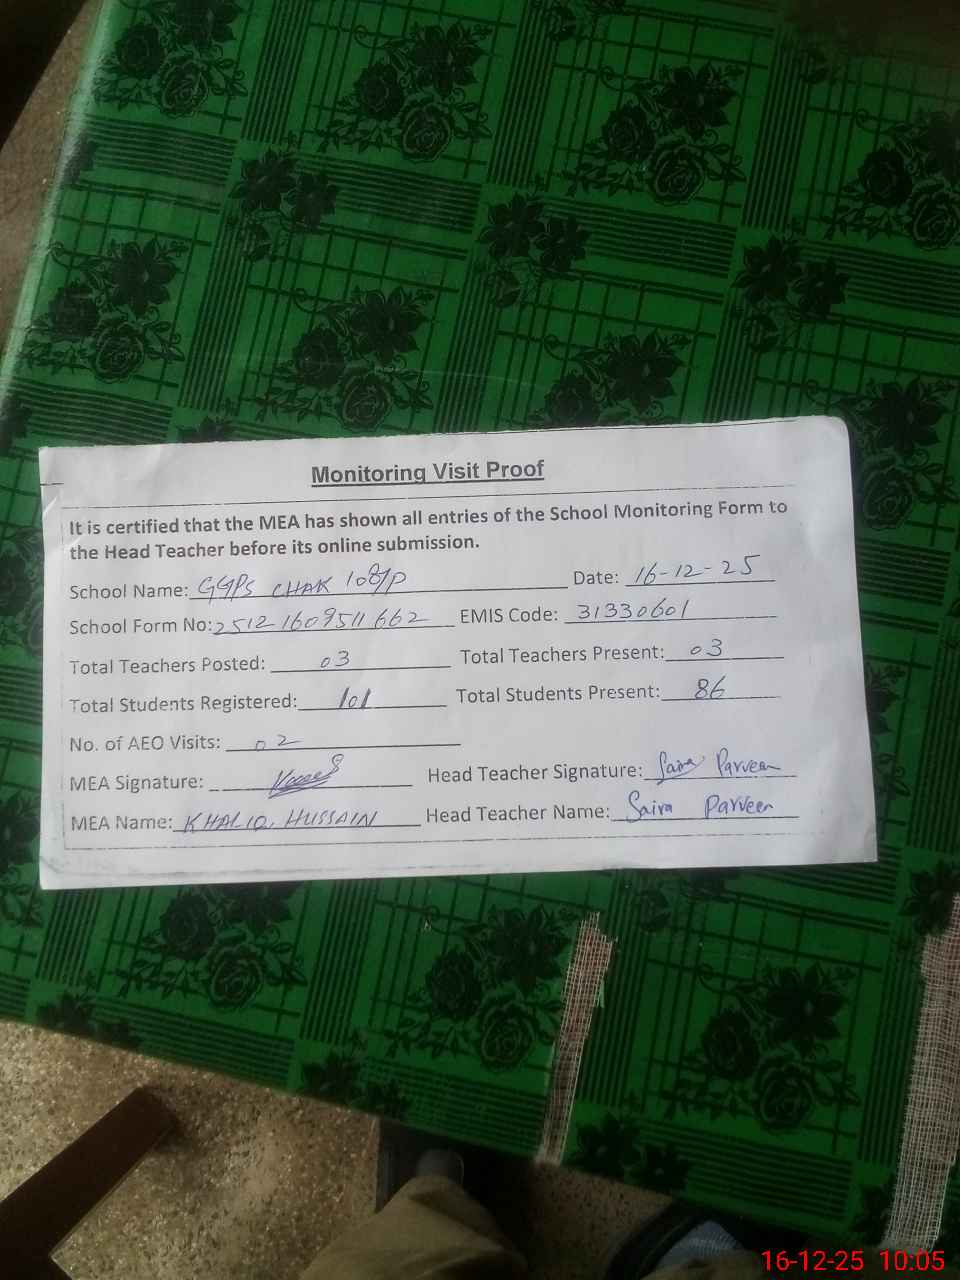 Monitoring Visit Proof
It is certified that the MEA has shown all entries of the School Monitoring Form to
the Head Teacher before its online submission.
School Name: GGPS CHAK 108/P Date: 16-12-25
School Form No: 25121609511662 EMIS Code: 31330601
Total Teachers Posted: 03 Total Teachers Present: 03
Total Students Registered: 101 Total Students Present: 86
No. of AEO Visits: 02
MEA Signature: Head Teacher Signature: Saira Parveen
MEA Name: KHALIQ HUSSAIN Head Teacher Name: Saira Parveen
16-12-25 10:05